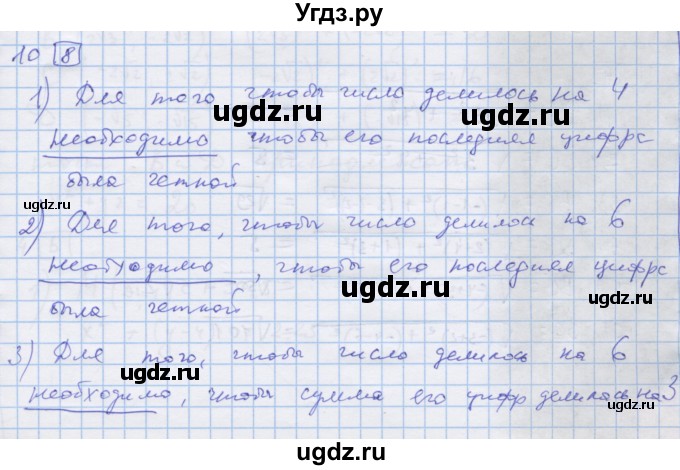 Угдз.ру
10 8
1) Для того чтобы число делилось на 4
необходимо чтобы его последняя цифра
была четной
2) Для того, чтобы число делилось на 6
необходимо, чтобы его последняя цифра
была четной
3) Для того, чтобы число делилось на 6
необходимо, чтобы сумма его цифр делилась на 3
ugdz.ru
ugdz.ru
ugdz.ru
ugdz.ru
ugdz.ru
ugdz.ru
ugdz.ru
ugdz.ru
ugdz.ru
ugdz.ru